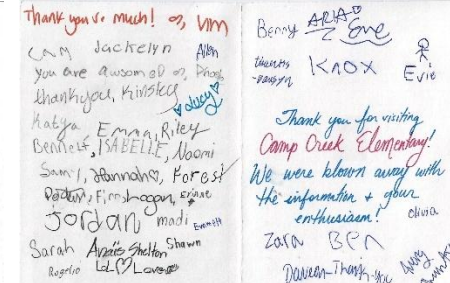 Thank you so much!
Cam Jackelyn Allen
you are awsome
thank you, Kinsley
Lucy
Katya Emma, Riley
Bennett, ISABELLE, Naomi
Sam, Hannah, Forest
Finn, Logan,
Jordan madi Emmett
Sarah Anaïs Shelton Shawn
Rogelio LOL Love
Benny ARIA Eve
KNOX Evie
Thank you for visiting
Camp Creek Elementary!
We were blown away with
the information + your
enthusiasm!
Olivia
Zara BEN
Thank-you